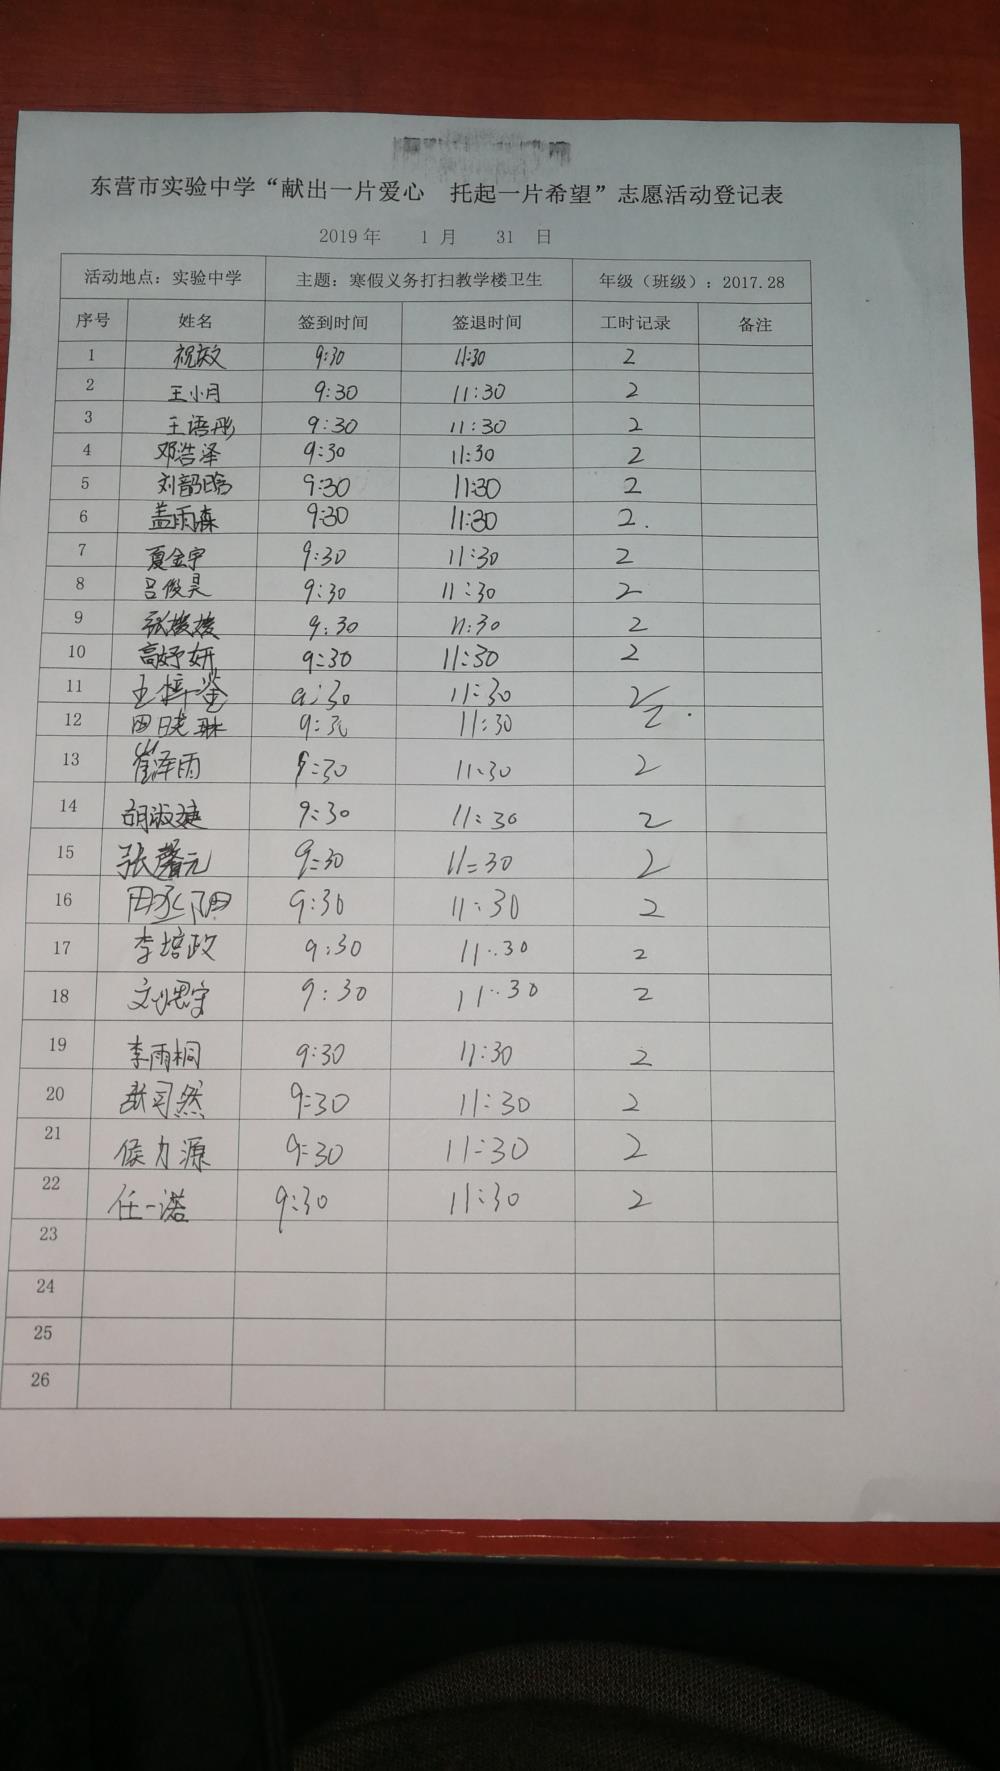 东营市实验中学“献出一片爱心 托起一片希望”志愿活动登记表
2019 年 1 月 31 日
活动地点：实验中学 主题：寒假义务打扫教学楼卫生 年级（班级）：2017.28
序号 姓名 签到时间 签退时间 工时记录 备注
1 9:30 11:30 2
2 王小月 9:30 11:30 2
3 王语彤 9:30 11:30 2
4 邓浩泽 9:30 11:30 2
5 9:30 11:30 2
6 盖雨森 9:30 11:30 2.
7 夏金宇 9:30 11:30 2
8 吕俊昊 9:30 11:30 2
9 张媛媛 9:30 11:30 2
10 高妤妍 9:30 11:30 2
11 9:30 11:30 2
12 田晓琳 9:30 11:30 2.
13 崔泽雨 9:30 11:30 2
14 胡淑婕 9:30 11:30 2
15 张馨元 9:30 11:30 2
16 9:30 11:30 2
17 李培政 9:30 11:30 2
18 刘思宇 9:30 11:30 2
19 李雨桐 9:30 11:30 2
20 张司然 9:30 11:30 2
21 侯力源 9:30 11:30 2
22 任一诺 9:30 11:30 2
23
24
25
26